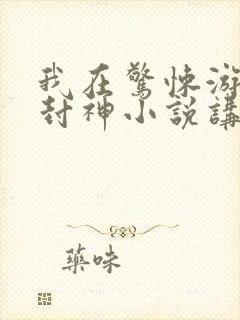 我在驚悚游
封神小說講
藥味